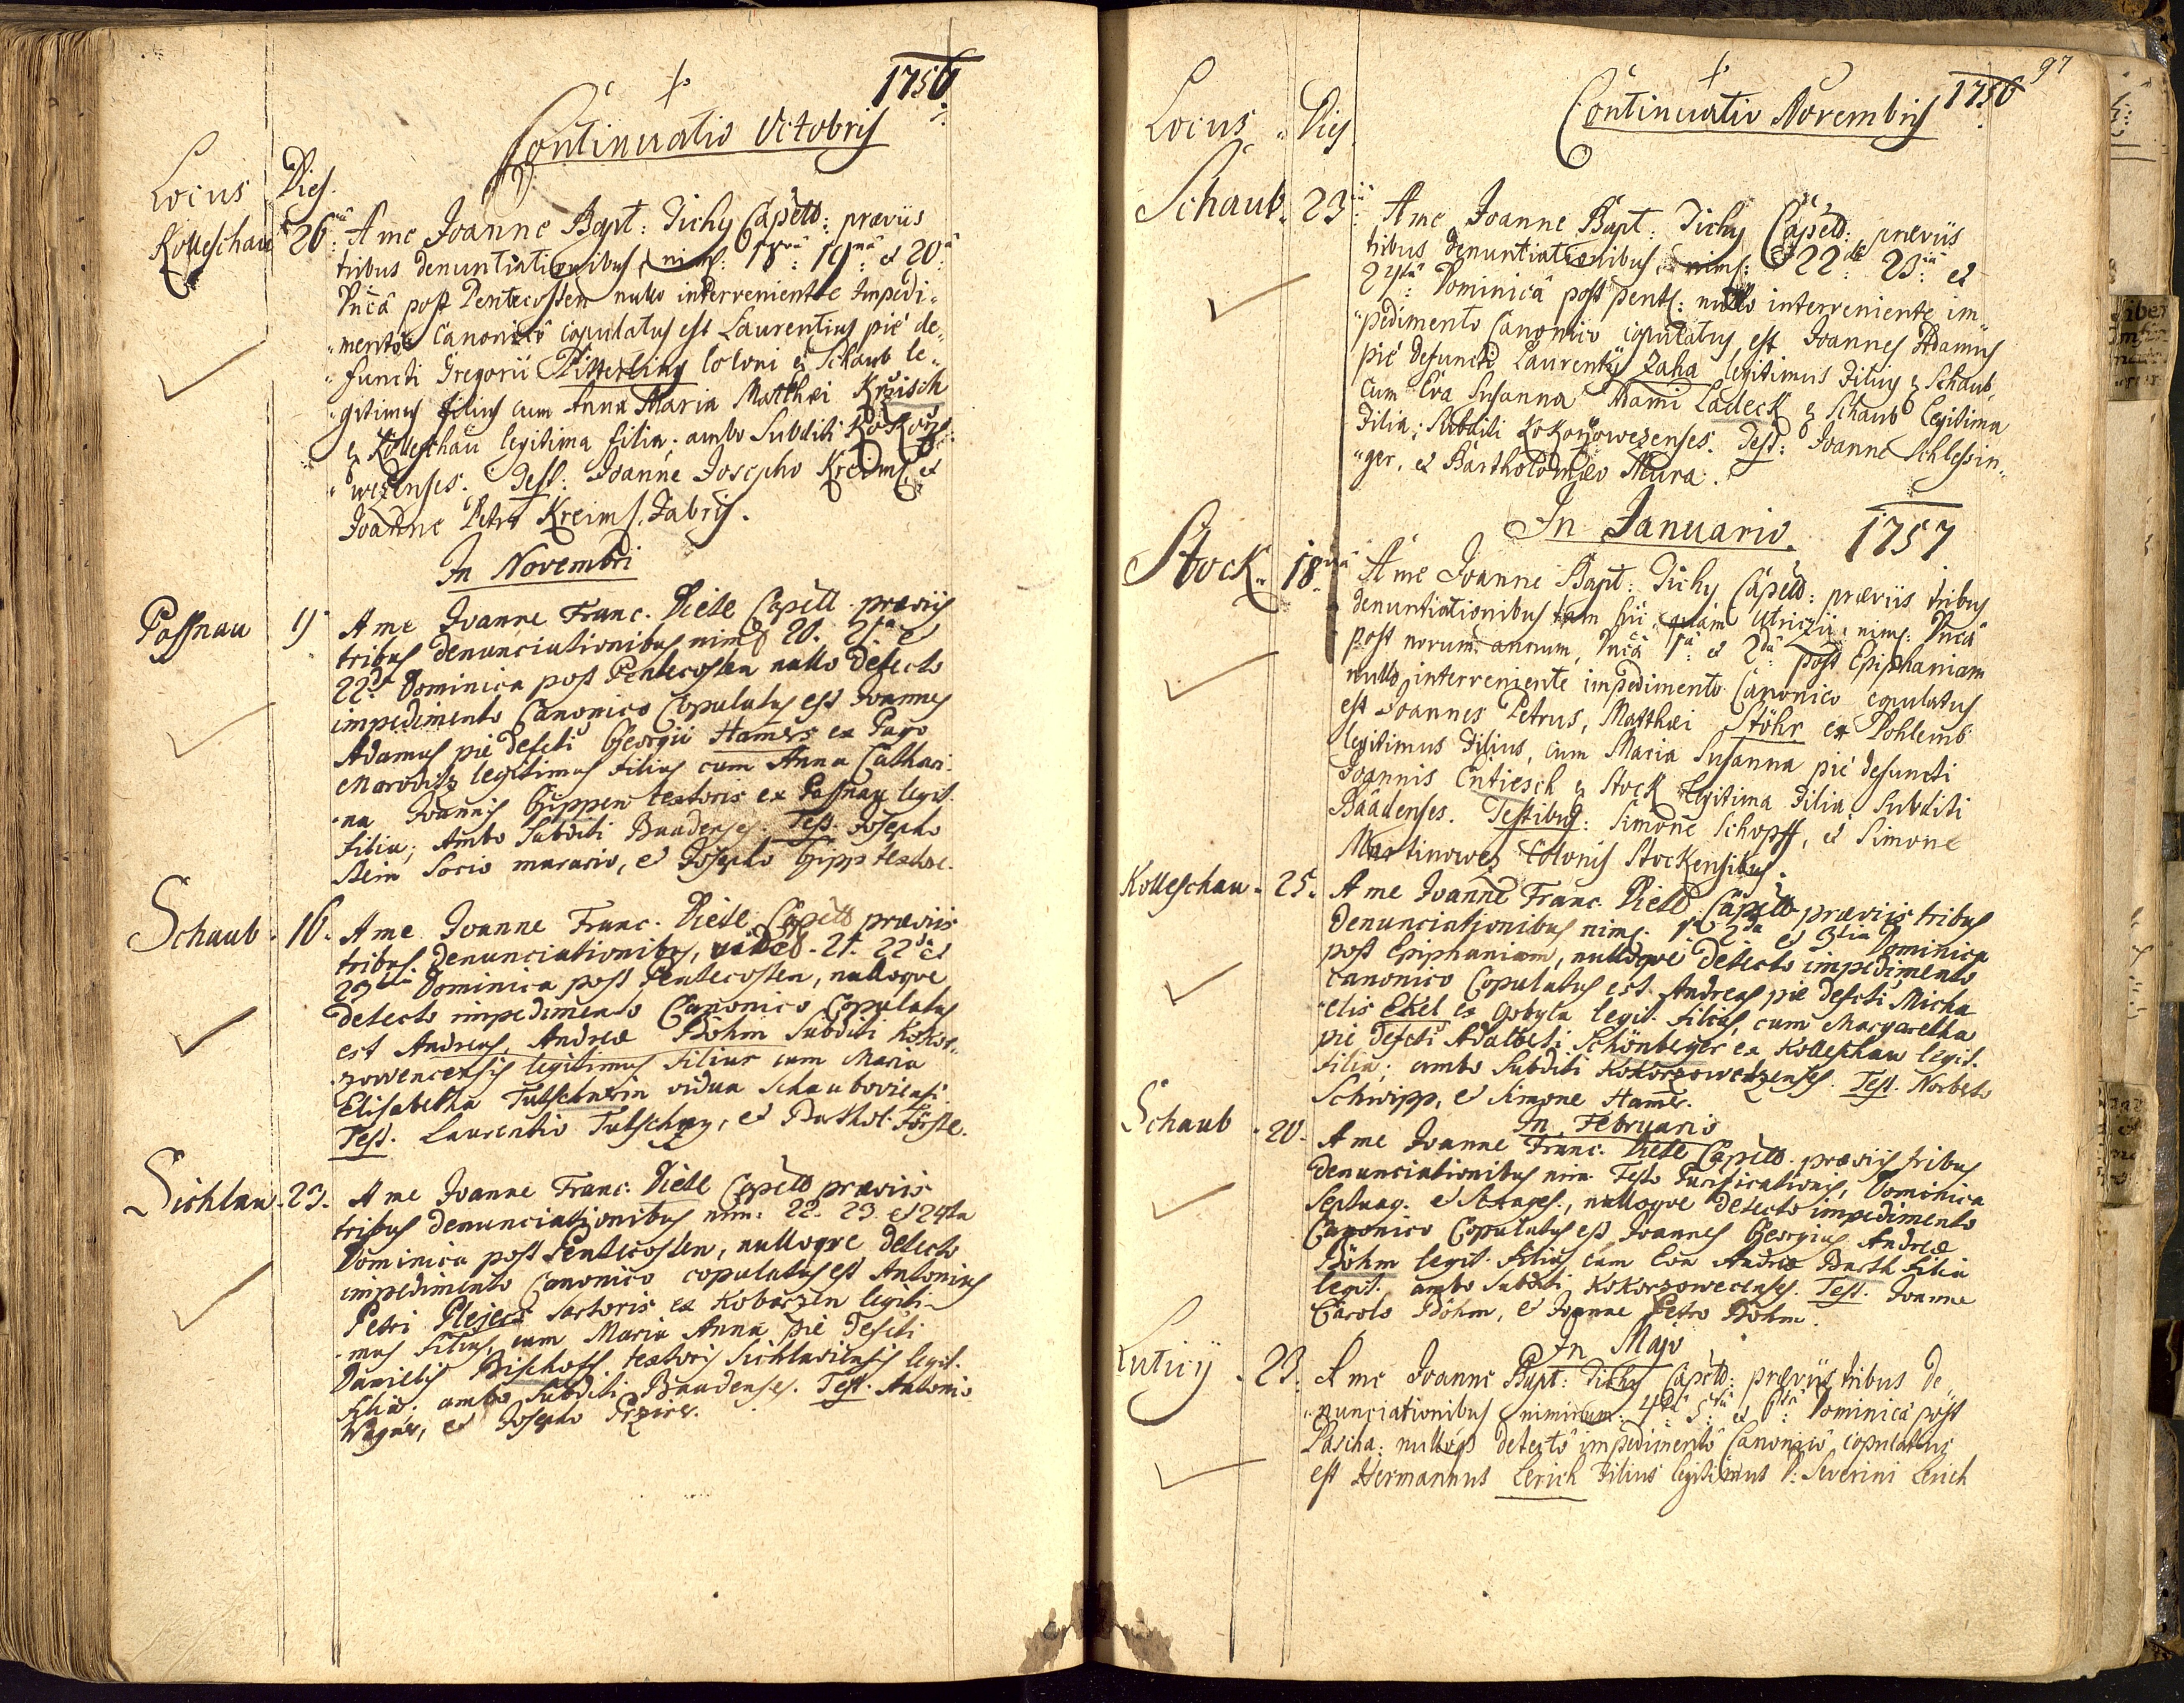 1756
Continuatio Octobris
Locus Dies
Kolleschau 26 A me Joanne Bapt: Tichy Capell: praeviis
tribus denuntiationibus, nims: 18va 19na et 20a
Dncâ post Pentecosten nullo interveniente Impedi„
„mento Canonico copulatus est Laurentius piè de„
„functi Gregorii Pitterling coloni ex Schaub le„
„gitimus filius cum Anna Maria Matthaei Kržisch
ex Kolleschau legitima filia; ambo Subditi Kokorž„
„wezenses. Test: Joanne Josepho Kreims, et
Joanne Petro Kreims, Fabris.
In Novembri
Passnau A me Joanne Franc. Diete Capell praeviis
tribus denunciationibus nim 20. 21ma et
22da Dominica post Pentecosten nullo detecto
impedimento Canonico Copulatus est Joannes
Adamus pie defcti Georgii Hamers ex Pago
Maroditz legitimus Filius cum Anna Cathari„
„na Joannis Gippen textoris ex Passnau legit.
Filia; Ambo Subditi Baadenses. Test. Josepho
Stein Socio murario, et Josepho Gipp textore.
Schaub . 16. A me Joanne Franc. Diete Capell praeviis
tribus denunciationibus, 21. 22da et
23tia Dominica post Pentecosten, nulloque
detecto impedimento Canonico Copulatus
est Andreas, Andreae Böhm Subditi Kokor„
„zowencensis legitimus Filius cum Maria
Elisabetha Tutschnerin vidua Schaubovicensi.
Test. Laurentio Tutschny, et Barthol. Förste.
Sichlau . 23. A me Joanne Franc. Diete Capell praeviis
tribus denunciationibus nim: 22. 23. et 24ta
Dominica post Pentecosten, nulloque detecto
impedimento Canonico copulatus est Antonius
Petri Plejer sartoris ex Koborzen legiti„
„mus Filius, cum Maria Anna pie defcti
Danielis Bischoff textoris Sichlaviensis legit.
filia. ambo Subditi Baadenses. Test. Antonio
Wagner, et Josepho
97
1756
Continuatio Novembris
Locus Dies
Schaub. 23 A me Joanne Bapt: Tichy Capell: praeviis
tribus denuntiationibus, nims: 22da 23tia et
24ta Dominicâ post pent: nullo interveniente im„
„pedimento Canonico copulatus est Joannes Adamus
piè defuncti Laurentij Zaha legitimus Filius ex Schaub,
cum Eva Susanna Adami Ladeck ex Schaub legitima
Filia; Subditi Kokoržowezenses. Test: Joanne Schlessin„
„ger, et Bartholomaeo Maura.
In Januario. 1757
Stock 18va A me Joanne Bapt: Tichy Capell: praeviis tribus
denuntiationibus tam hii quàm Utriczii, nims: Dncâ
post novum annum, Dncâ 1a et 2da post Epiphaniam
nullo interveniente impedimento Canonico copulatus
est Joannes Petrus, Matthaei Stöhr ex Pohlemb
legitimus Filius, cum Maria Susanna piè defuncti
Joannis Entiesch ex Stock legitima Filia; Subditi
Baadenses. Testibus: Simone Schopff, et Simone
Martinowez colonis Stockensibus.
Kolleschau . 25. A me Joanne Franc. Diete Capell praeviis tribus
denunciationibus nims. 1a 2da et 3tia Dominica
post Epiphaniam, nulloque detecto impedimento
canonico Copulatus est Andreas pie defcti Micha„
„elis Ekel ex Hobyla legit. filius, cum Margaretha
pie defcti Adalberti Schönberger ex Kolleschau legit.
filia; ambo Subditi Kokorzowetzenses. Test. Norberto
Schwipp, et Simone Hamer.
In Februario
Schaub . 20. A me Joanne Franc. Diete Capell praeviis tribus
denunciationibus nim. Festo Purificationis, Dominica
Septuag. et Sexages., nulloque detecto impedimento
Canonico Copulatus est Joannes Georgius Andreae
Böhm legit. filius cum Eva Andreae Barth Filia
legit. ambo Subditi Kokorzowecenses. Test. Joanne
Carolo Böhm, et Joanne Petro Böhm.
In Majo
Luticij . 23. A me Joanne Bapt: Tichy Capell: praeviis tribus de„
„nunciationibus nimirum: 4ta 5ta et 6ta Dominicâ post
Pascha: nulloqs detecto impedimentô Canonicô copulatus
est Hermannus Lerich Filius legitimus D: Severini Lerich